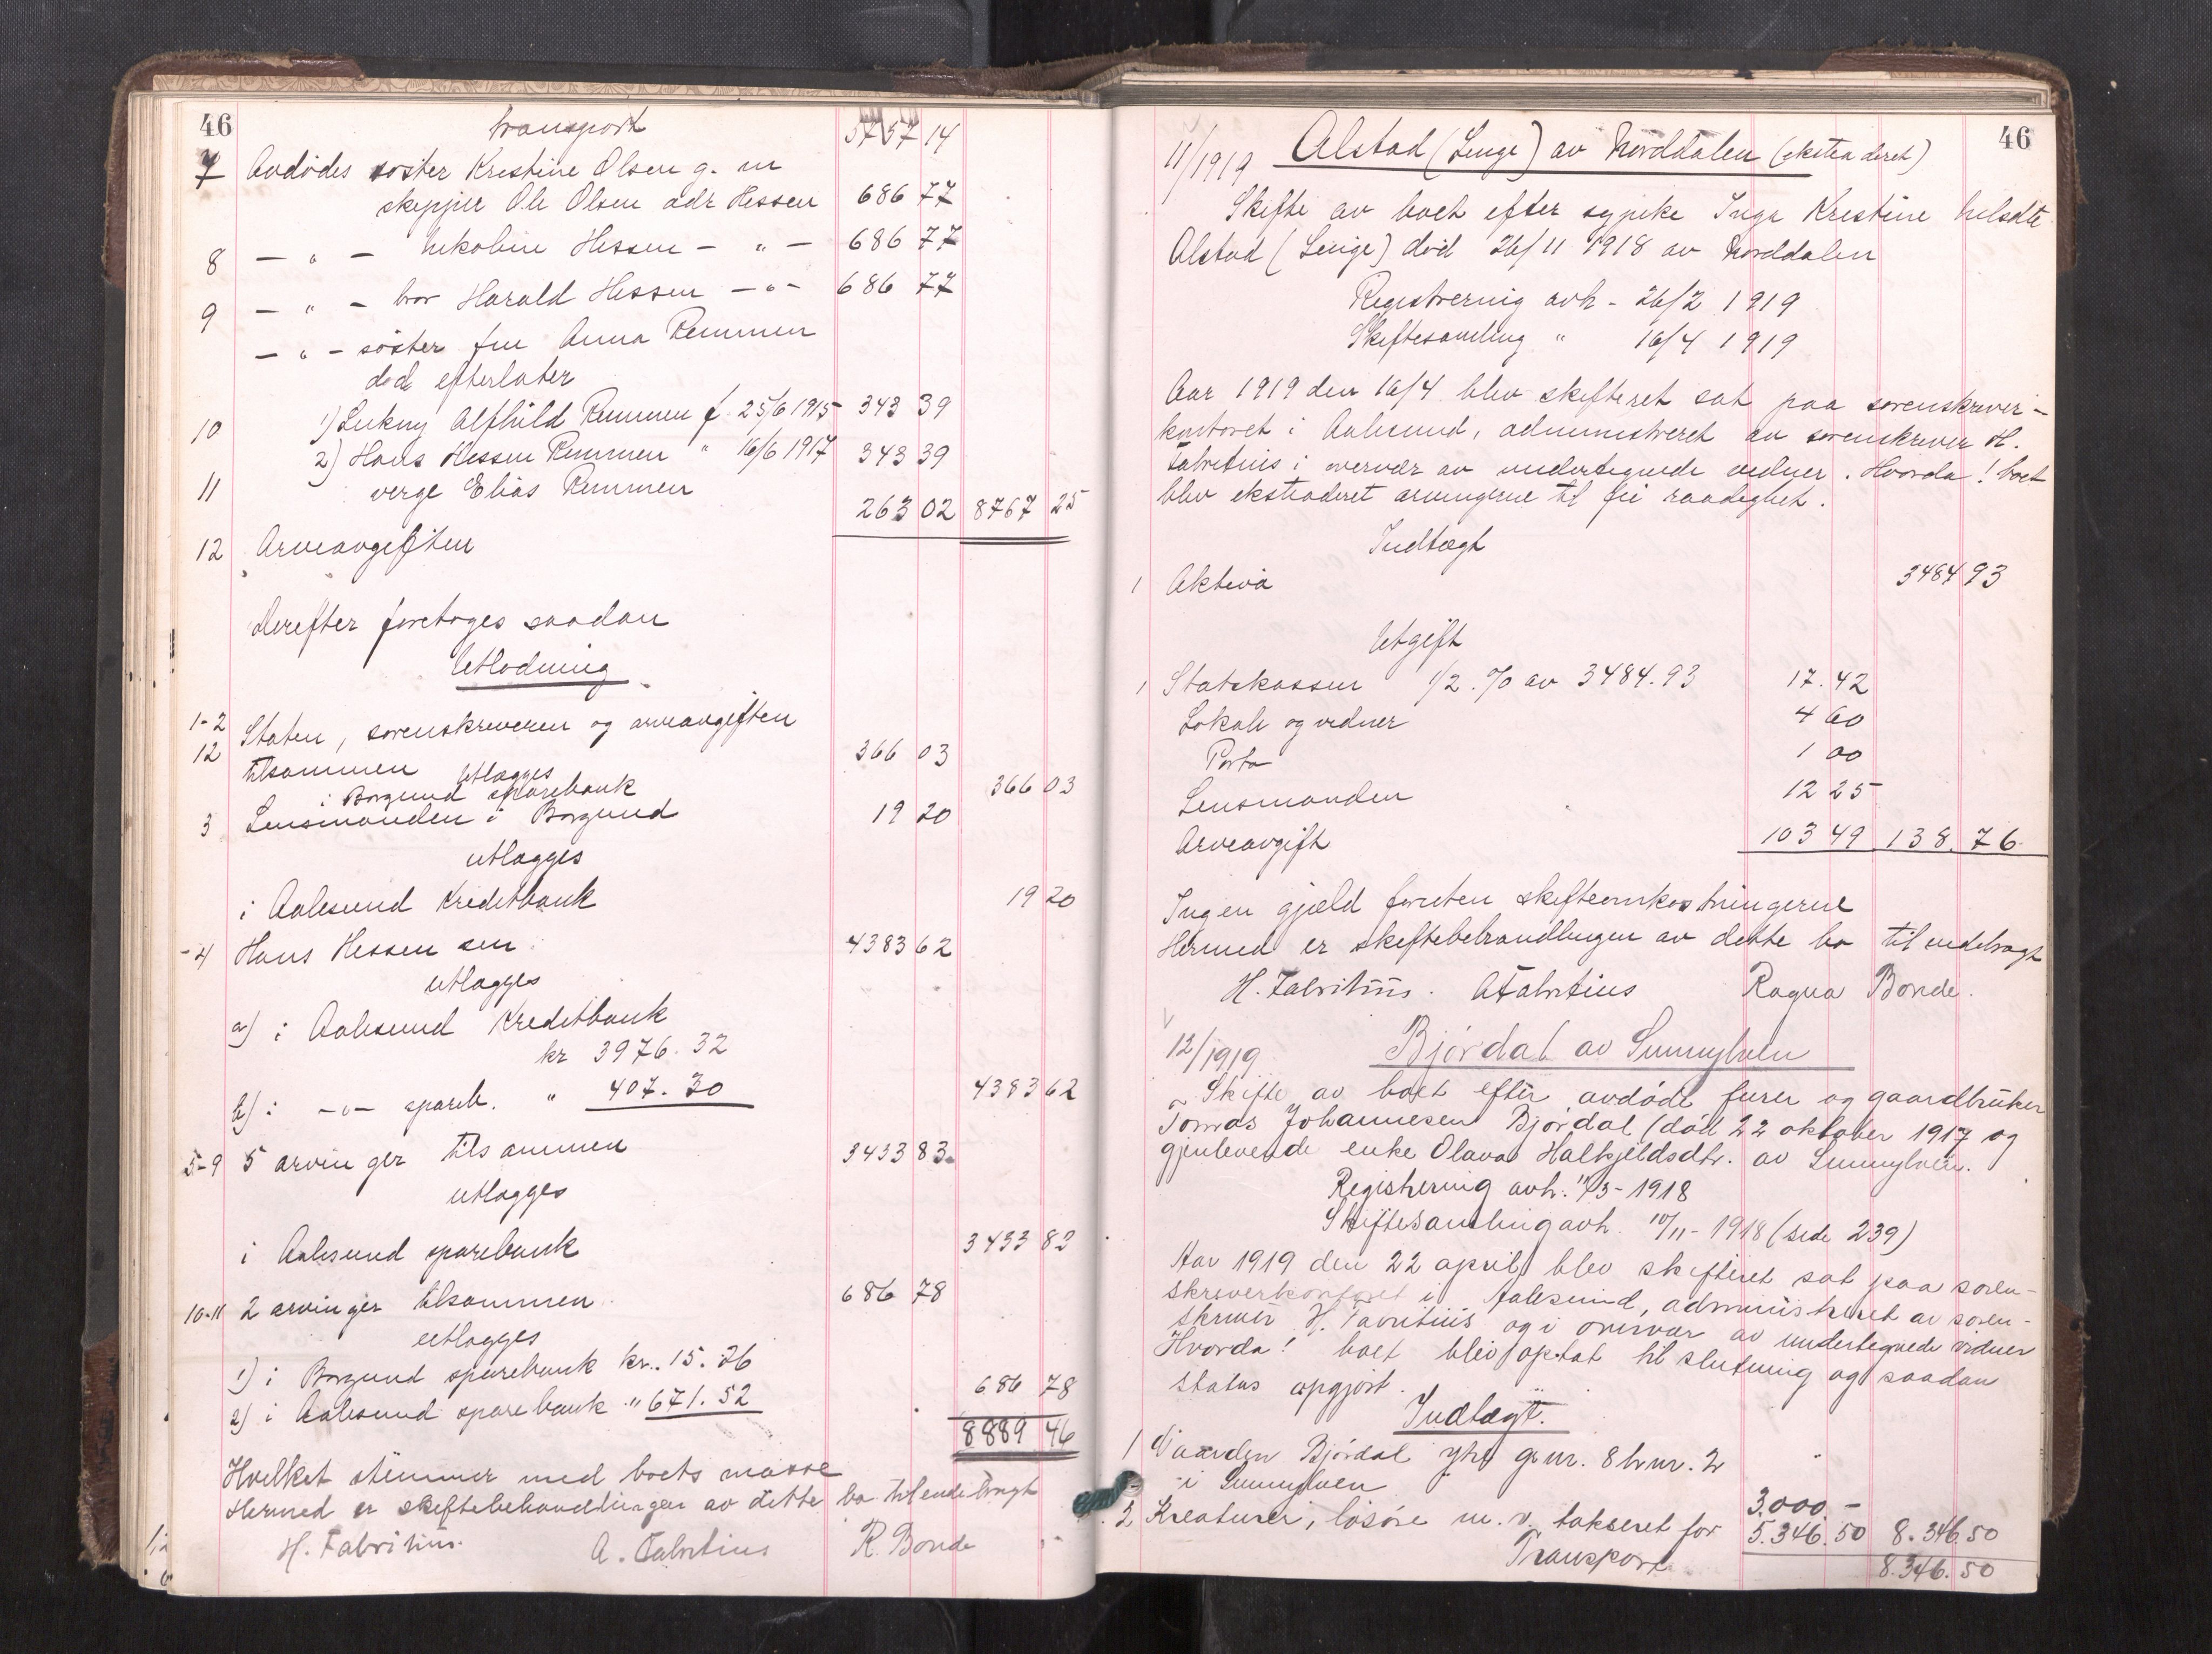 46 transport 5757 14
7 Avdødes søster Kristine Olsen g. m
skipper Ole Olsen adr Hessen 686 77
8 — " — Nikoline Hessen — " — 686 77
9 — " — bror Harald Hessen — " — 686 77
— " — søster fru Anna Remmen
død efterlater
10 1) Alfhild Remmen f. 25/6 1915 343 39
11 2) Hans Hessen Remmen " 16/6 1917 343 39
verge Elias Remmen
12 Arveavgiften 263 02 8767 25
Derefter foretoges saadan
Utlodning
1-2 Staten, sorenskriveren og arveavgiften
12 tilsammen 366 03
utlægges
i Borgund sparebank 366 03
3 Lensmanden i Borgund 19 20
utlægges
i Aalesund Kreditbank 19 20
-4 Hans Hessen sen. 4383 62
utlægges
a) i Aalesund Kreditbank
kr 3976.32
b) i — " — spareb. " 407.30 4383 62
5-9 5 arvinger tilsammen 3433 83
utlægges
i Aalesund sparebank 3433 83
10-11 2 arvinger tilsammen 686 78
utlægges
1) i Borgund sparebank kr. 15.26
2) i Aalesund sparebank " 671.52 686 78
8889 46
Hvilket stemmer med boets masse
Hermed er skiftebehandlingen av dette bo tilendebragt
H. Fabritius. A. Fabritius R. Bonde
46
11/1919 Alstad (Linge) av Norddalen (ekstraderet)
Skifte av boet efter sypike Inga Kristine Nilsdtr.
Alstad (Linge) død 26/11 1918 av Norddalen
Registrering avh - 26/2 1919
Skiftesamling " 16/4 1919
Aar 1919 den 16/4 blev skifteret sat paa sorenskriver-
kontoret i Aalesund, administreret av sorenskriver H.
Fabritius i overvær av undertegnede vidner. Hvorda! boet
blev ekstraderet arvingerne til fri raadighet.
Indtægt
1 Aktiva 3484 93
Utgift
1 Statskassen 1/2 % av 3484.93 17.42
Lokale og vidner 4 60
Porto 1 00
Lensmanden 12 25
Arveavgift 103 49 138.76
Ingen gjæld foruten skifteomkostningerne
Hermed er skiftebehandlingen av dette bo tilendebragt
H. Fabritius. A Fabritius Ragna Bonde.
12/1919 Bjørdal av Sunnylven
Skifte av boet efter avdøde furer og gaardbruker
Tomas Johannesen Bjørdal (død 22 oktober 1917 og
gjenlevende enke Olava Halkjeldsdtr. av Sunnylven.
Registrering avh. 11/3-1918
Skiftesamling avh. 10/11-1918 (side 239)
Aar 1919 den 22 april blev skifteret sat paa soren-
skriverkontoret i Aalesund, administreret av soren-
skriver H. Fabritius og i overvær av undertegnede vidner
Hvorda! boet blev optat til slutning og saadan
status opgjort.
Indtægt.
1 Gaarden Bjørdal ytre g.nr. 8 b.nr. 2
i Sunnylven 3.000.-
2 Kreaturer, løsøre m. v. takseret for 5.346.50 8.346.50
Transport 8.346.50